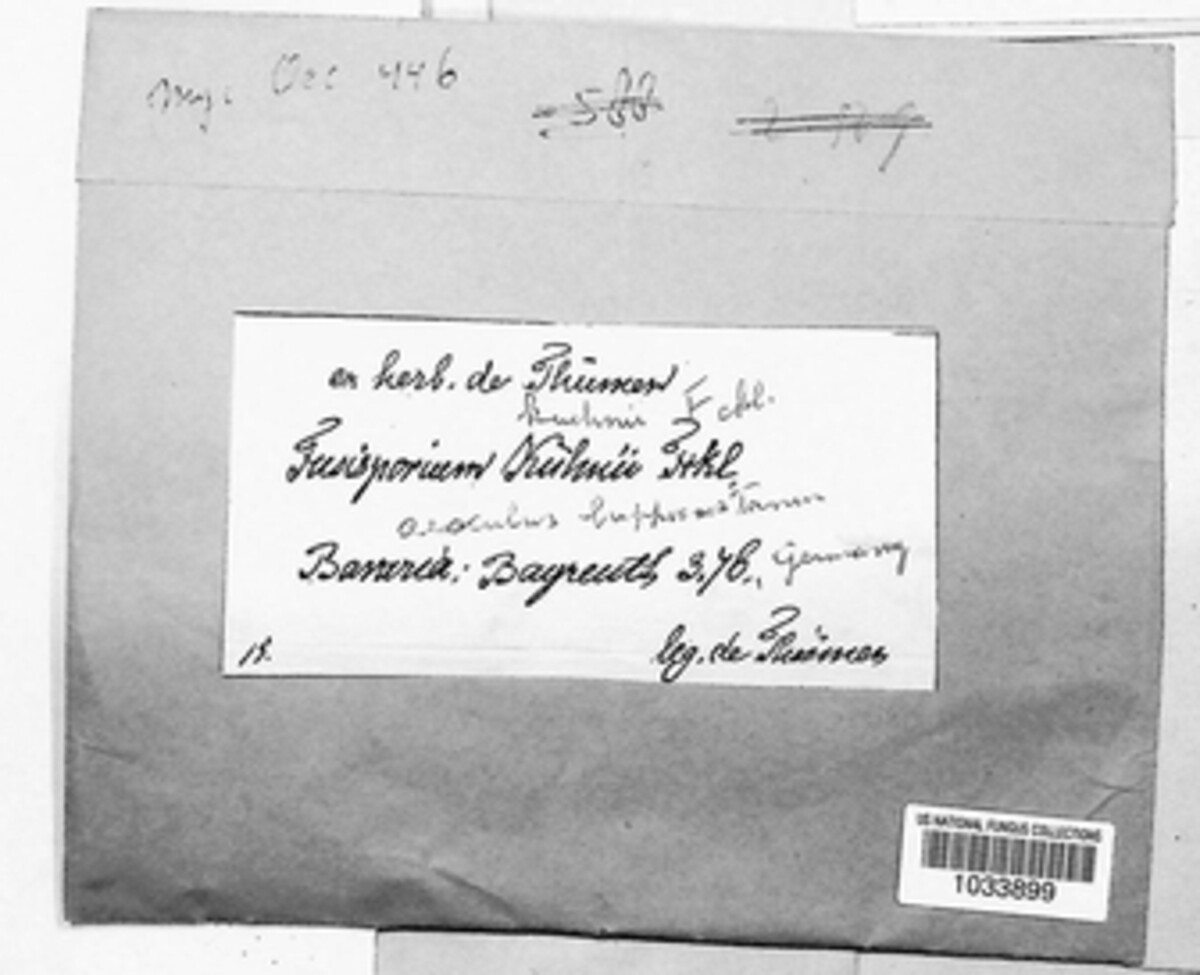 Myc. Oec 446 588
ex herb. de Thümen
Kuehnii Fckl.
Fusisporium Kühnii Fckl.
Bavaria: Bayreuth, 3.76., Germany
leg. de Thümen
US NATIONAL FUNGUS COLLECTIONS
1033899